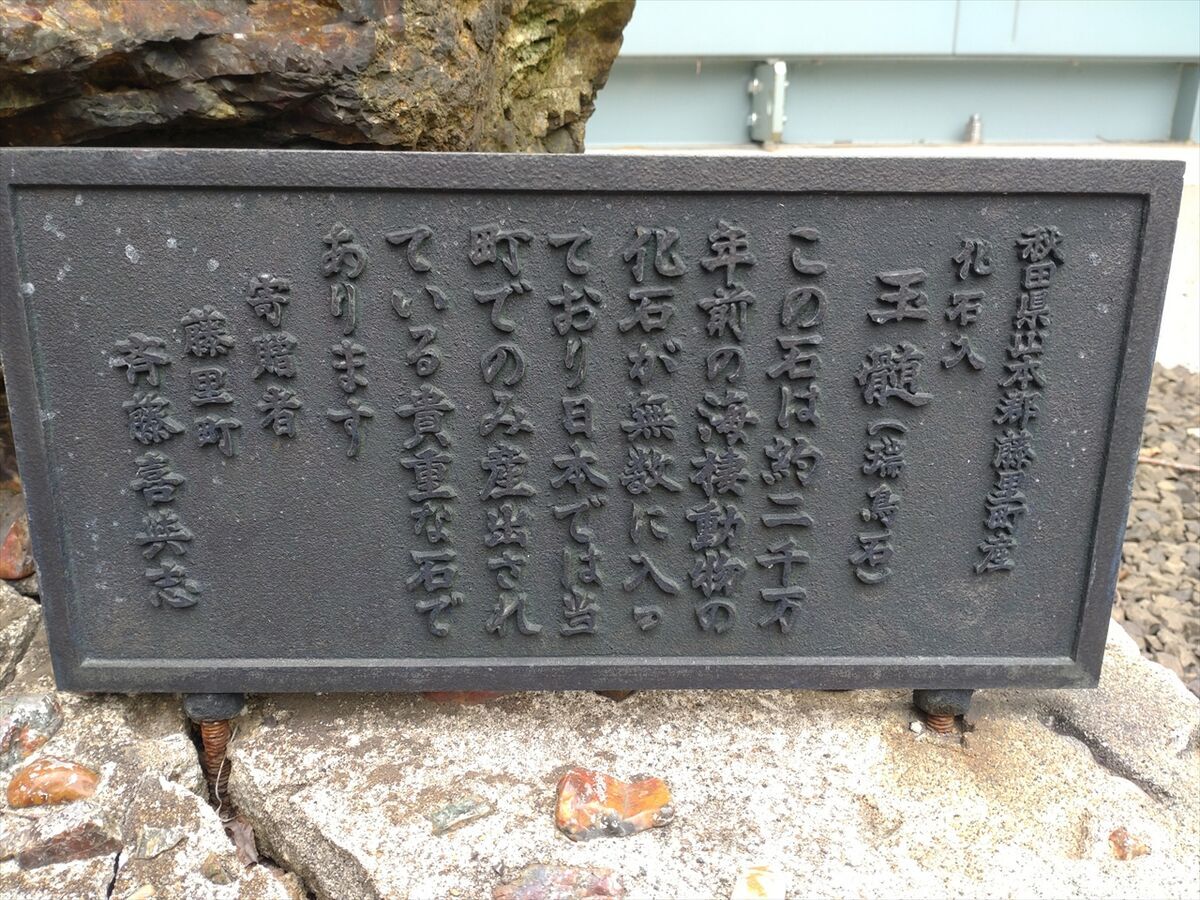 秋田県山本郡藤里町産
化石入
玉髄（瑞鳥石）
この石は約二千万
年前の海棲動物の
化石が無数に入っ
ており日本では当
町でのみ産出され
ている貴重な石で
あります
寄贈者
藤里町
斉藤喜英志